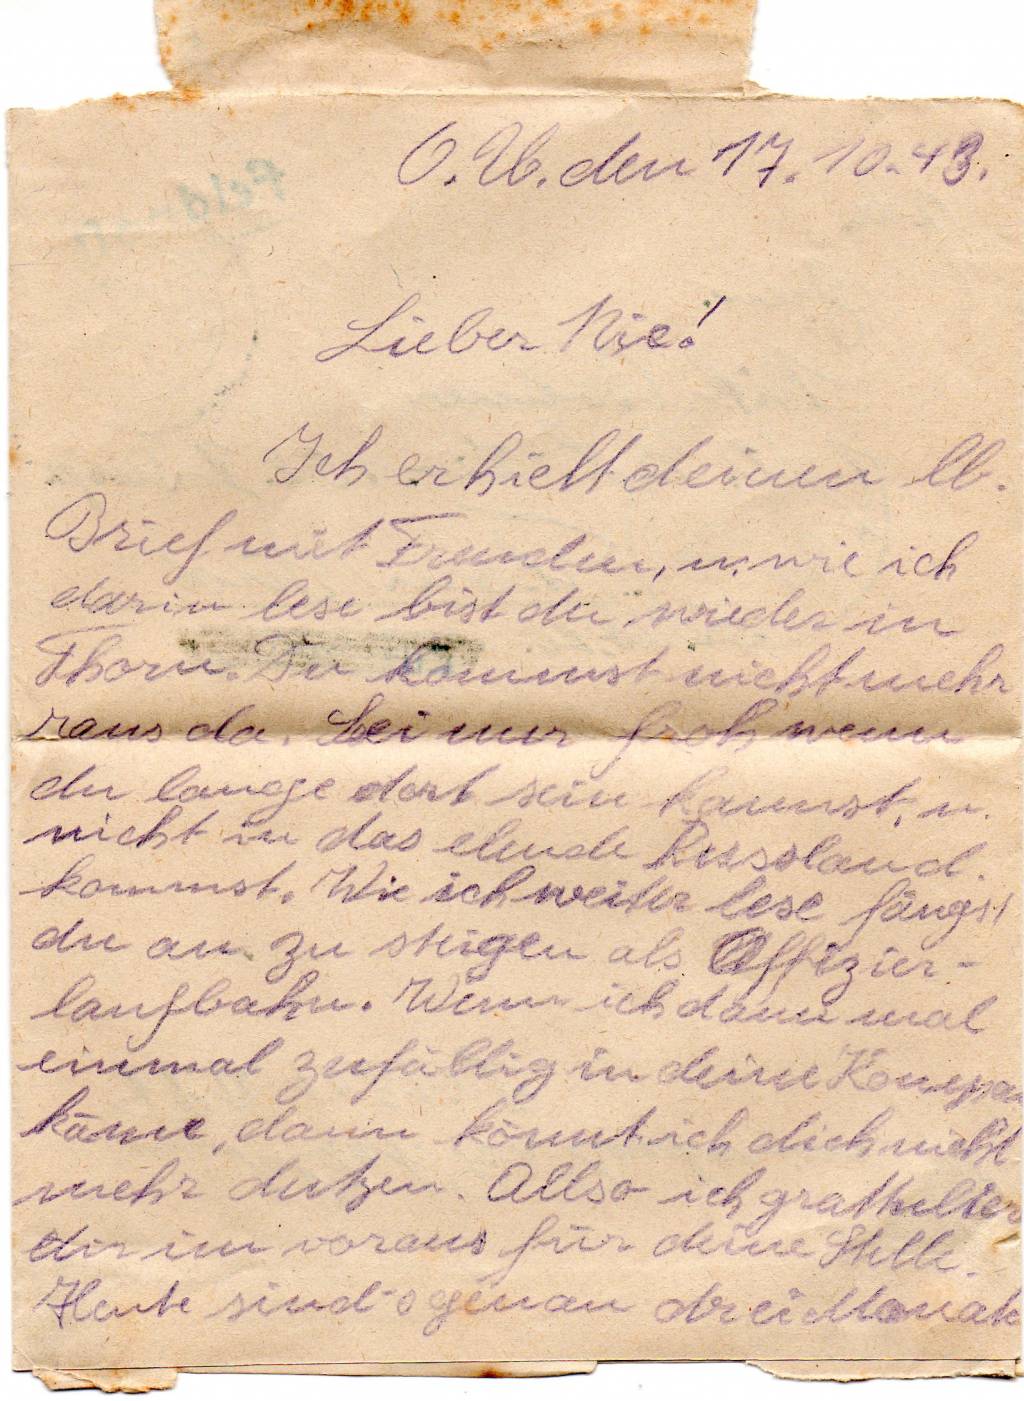 O.U. den 17.10.43.
Lieber Nic!
Ich erhielt deinen lb.
Brief mit Freuden, u. wie ich
darin lese bist du wieder in
Thorn. Du kommst nicht mehr
raus da. Sei nur froh wenn
du lange dort sein kannst, u.
nicht in das elende Russland.
kommst. Wie ich weiter lese fängst
du an zu steigen als Offizier-
laufbahn. Wenn ich dann mal
einmal zufällig in deine Kompa
käme, dann könnt ich dich nicht
mehr dutzen. Allso ich grathulier
dir im voraus für deine Stelle.
Heute sind's genau drei Monate